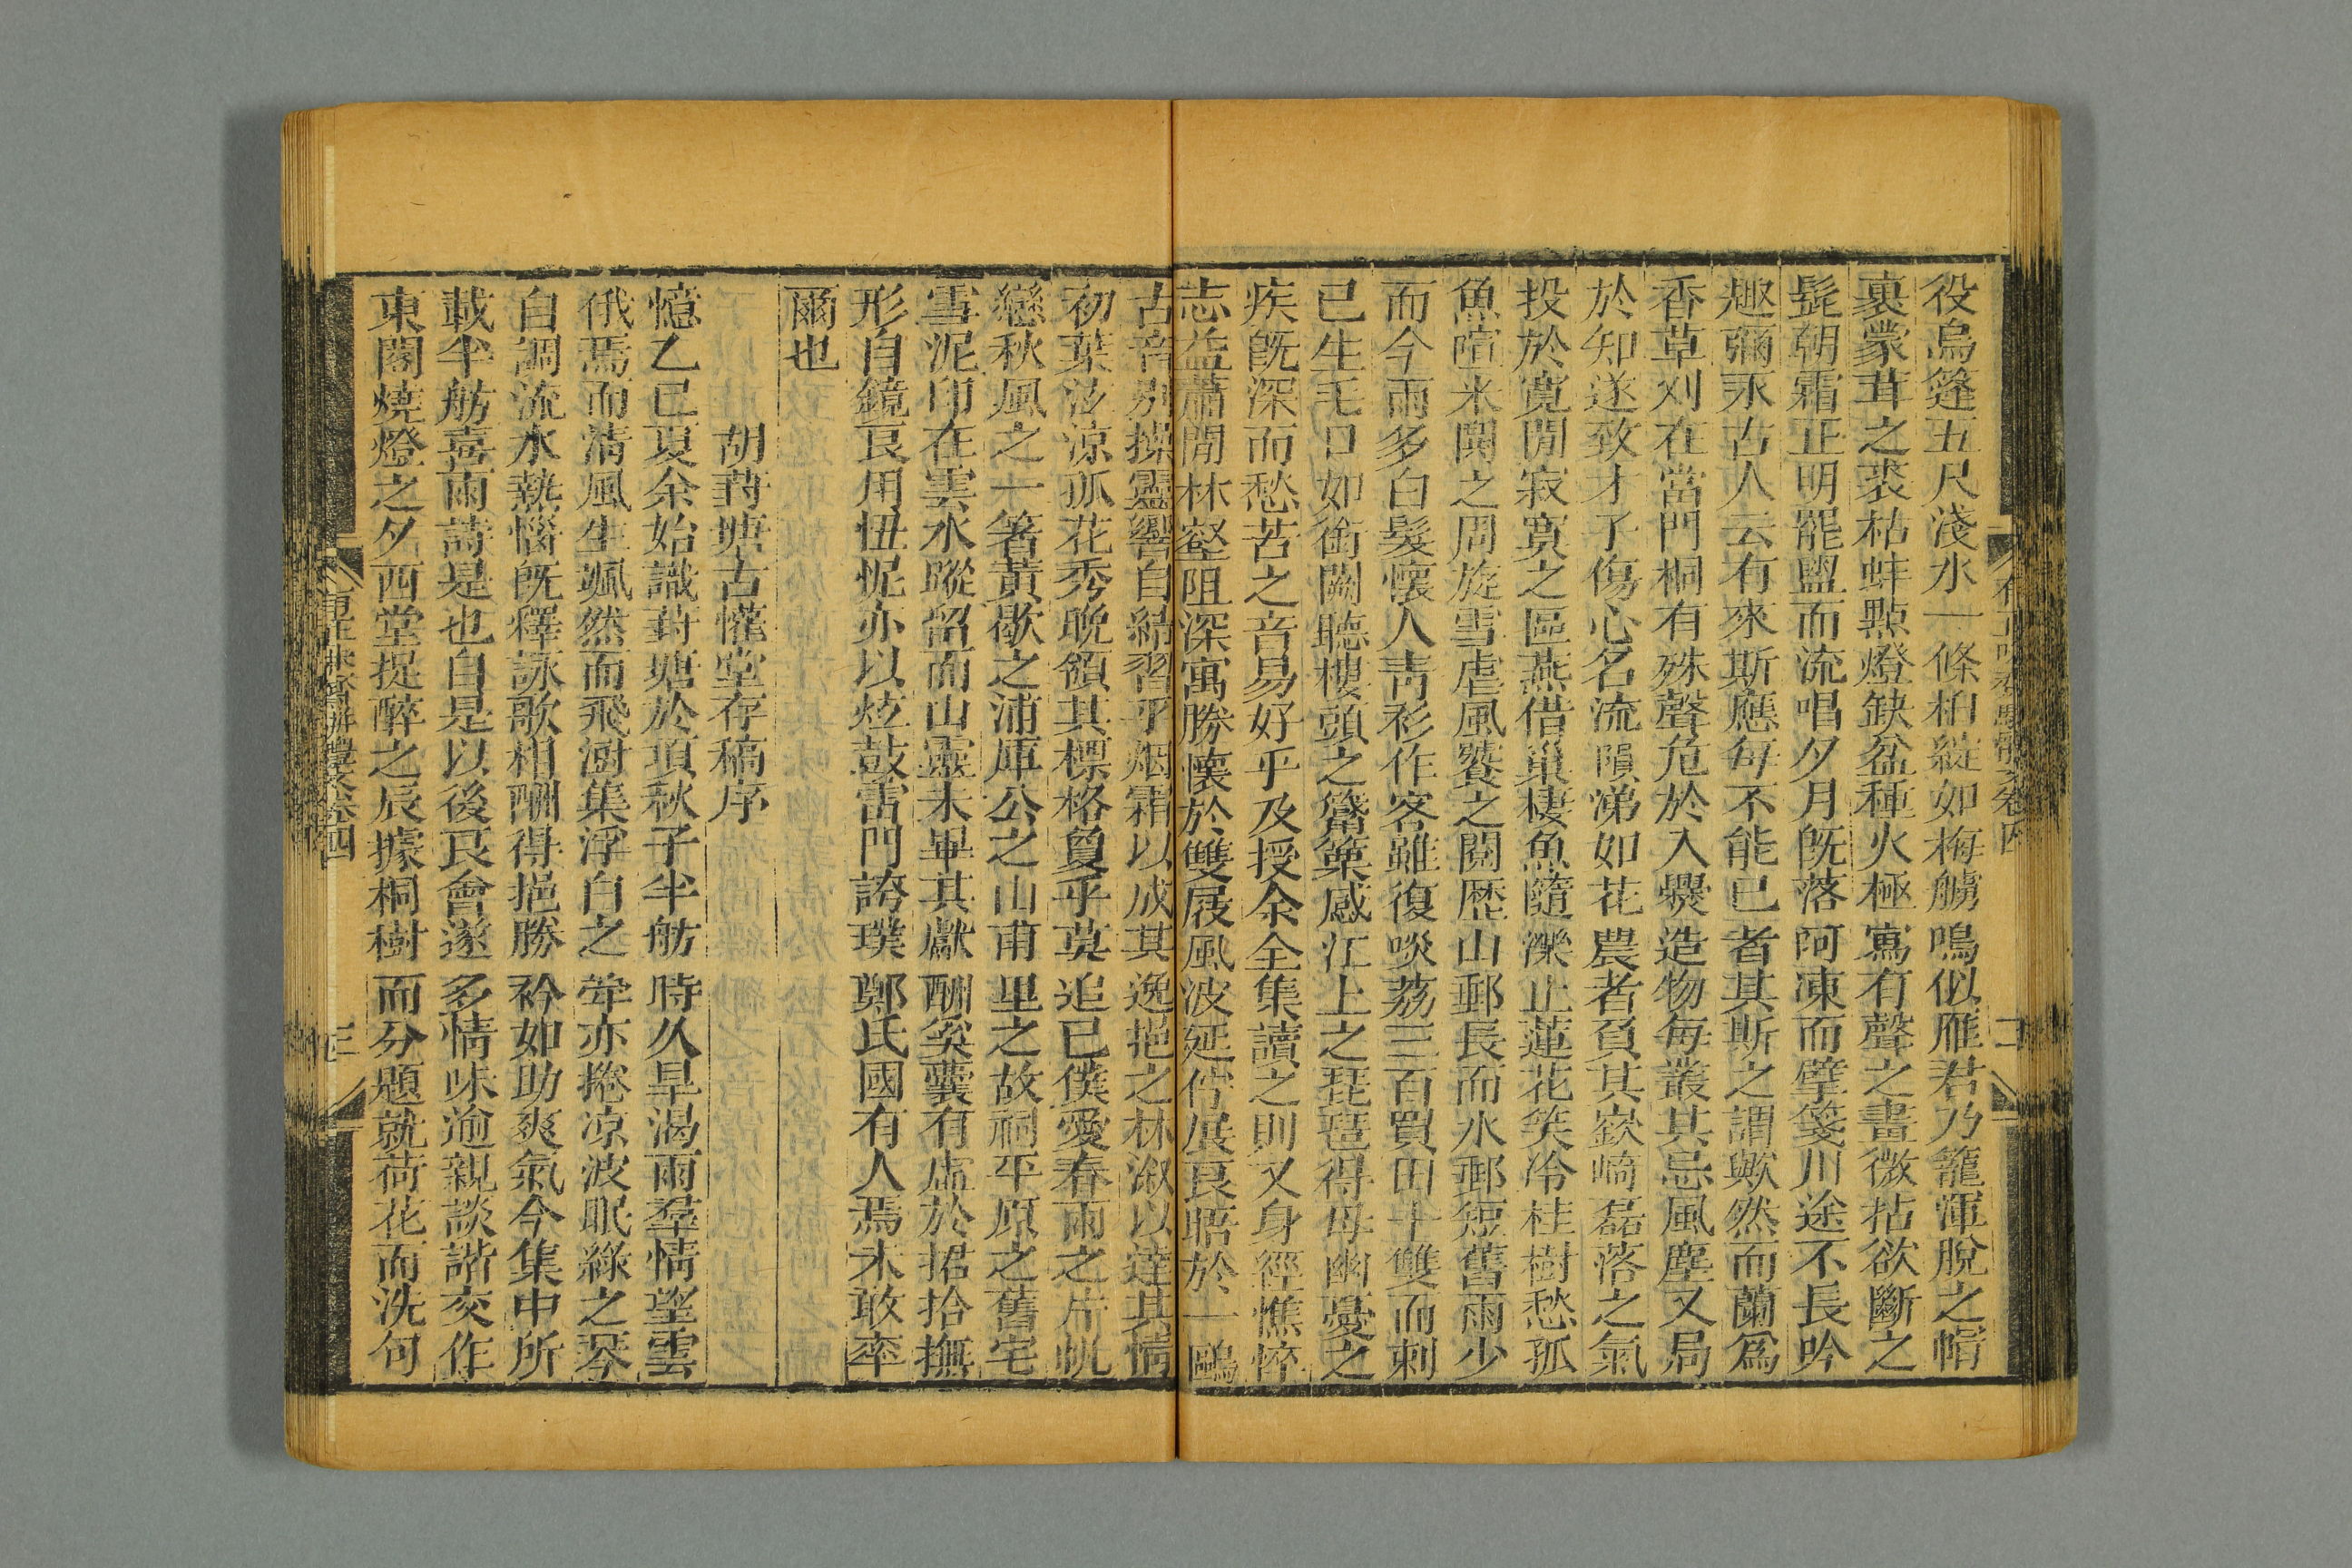 役烏篷五尺淺水一條柏縱如梅觴鳴似雁君乃籠渾脫之帽
裹蒙茸之裘枯蚌點燈缺盆種火極寫有聲之畫微拈欲斷之
髭朝霜正明罷盥而流唱夕月既落阿凍而擘箋川途不長吟
趣彌永古人云有來斯應每不能已者其斯之謂歟然而蘭爲
香草刈在當門桐有殊聲危於入爨造物每叢其忌風塵又局
於知遂致才子傷心名流隕涕如花農者負其嶔崎磊落之氣
投於寬閒寂寞之區燕借巢棲魚隨濼止蓮花笑冷桂樹愁孤
魚喧米閧之周旋雪虐風饕之閱歷山郵長而水郵短舊雨少
而今雨多白髮懷人靑衫作客雖復啖荔三百買田十雙而刺
已生毛口如銜闕聽樓頭之觱篥感江上之琵琶得毋幽憂之
疾既深而愁苦之音易好乎及授余全集讀之則又身經憔悴
志益蕭閒林壑阻深寓勝懷於雙屐風波延佇展良晤於一鷗
古音別操靈響自結習乎烟霜以成其逸挹之林淑以達其情
初葉泫涼孤花秀晚領其標格敻乎莫追已僕愛春雨之片帆
戀秋風之一箸黃歇之浦厙公之山甫里之故祠平原之舊宅
雪泥印在雲水蹤留而山靈未畢其獻酬奚囊有虛於捃拾撫
形自鏡良用忸怩亦以炫鼓雷門誇璞鄭氏國有人焉未敢率
爾也
胡葑塘古懽堂存稿序
憶乙巳夏余始識葑塘於項秋子半舫時久旱渴雨羣情望雲
俄焉而清風生颯然而飛澍集浮白之斝亦捲凉波眠綠之琴
自調流水熱惱既釋詠歌相酬得挹勝衿如助爽氣今集中所
載半舫喜雨詩是也自是以後良會遂多情味逾親談諧交作
東閣燒燈之夕西堂捉醉之辰據桐樹而分題就荷花而洗句